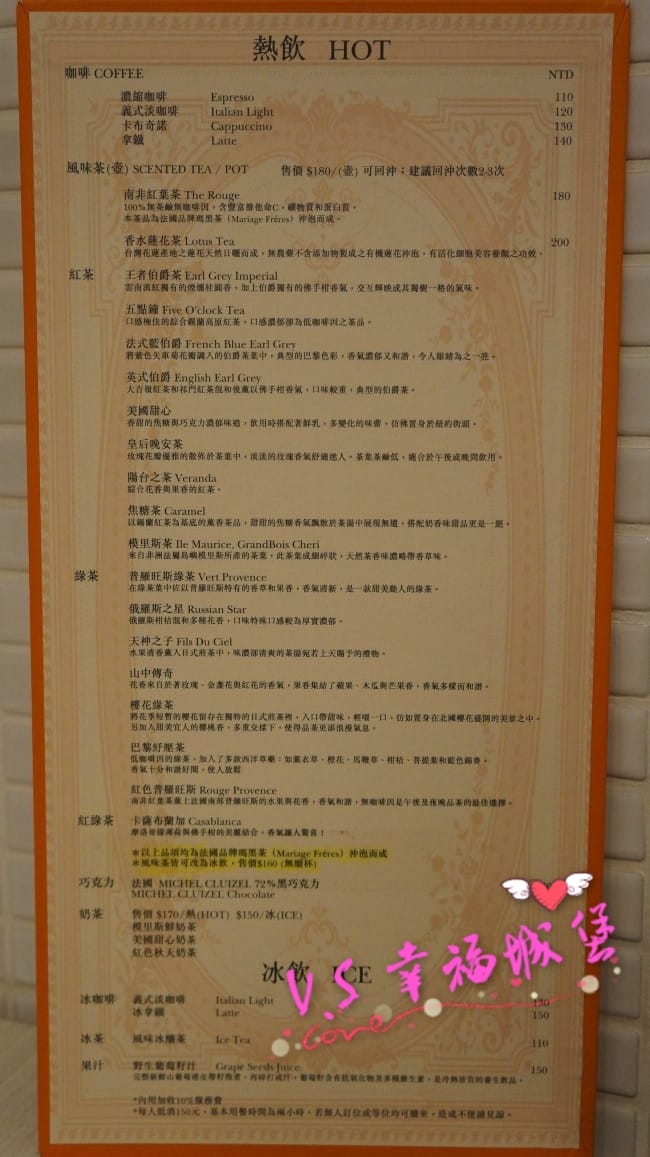 熱飲 HOT
咖啡 COFFEE NTD
濃縮咖啡 Espresso 110
義式淡咖啡 Italian Light 120
卡布奇諾 Cappuccino 130
拿鐵 Latte 140
風味茶(壺) SCENTED TEA / POT 售價 $180/(壺) 可回沖；建議回沖次數2-3次
南非紅葉茶 The Rouge 180
100%無茶鹼無咖啡因，含豐富維他命C，礦物質和蛋白質。
本茶品為法國品牌瑪黑茶（Mariage Fréres）沖泡而成。
香水蓮花茶 Lotus Tea 200
台灣花蓮產地之蓮花天然日曬而成，無農藥不含添加物製成之有機蓮花沖泡，有活化細胞美容養顏之功效。
紅茶 王者伯爵茶 Earl Grey Imperial
雲南滇紅獨有的煙燻桂圓香，加上伯爵獨有的佛手柑香氣，交互輝映成其獨樹一格的氣味。
五點鐘 Five O'clock Tea
口感極佳的綜合錫蘭高原紅茶，口感濃郁卻為低咖啡因之茶品。
法式藍伯爵 French Blue Earl Grey
將紫色矢車菊花瓣調入的伯爵茶葉中，典型的巴黎色彩，香氣濃郁又和諧，令人眼睛為之一亮。
英式伯爵 English Earl Grey
大吉嶺紅茶和祁門紅茶混和後薰以佛手柑香氣，口味較重，典型的伯爵茶。
美國甜心
香甜的焦糖與巧克力濃郁味道，飲用時搭配著鮮乳，多變化的味蕾，彷彿置身於紐約街頭。
皇后晚安茶
玫瑰花瓣優雅的散佈於茶葉中，淡淡的玫瑰香氣舒適迷人。茶葉茶鹼低，適合於午後或晚間飲用。
陽台之茶 Veranda
綜合花香與果香的紅茶。
焦糖茶 Caramel
以錫蘭紅茶為基底的薰香茶品，甜甜的焦糖香氣飄散於茶湯中展現無遺，搭配奶香味甜品更是一絕。
模里斯茶 Ile Maurice, GrandBois Cheri
來自非洲法屬島嶼模里斯所產的茶葉，此茶葉成細碎狀，天然茶香味濃略帶香草味。
綠茶 普羅旺斯綠茶 Vert Provence
在綠茶葉中佐以普羅旺斯特有的香草和果香，香氣清新，是一款甜美動人的綠茶。
俄羅斯之星 Russian Star
俄羅斯柑桔混和多種花香，口味特殊口感較為厚實濃郁。
天神之子 Fils Du Ciel
水果清香薰入日式煎茶中，味濃郁清爽的茶湯宛若上天賜予的禮物。
山中傳奇
花香來自於著玫瑰、金盞花與紅花的香氣，果香集結了蘋果、木瓜與芒果香，香氣多樣而和諧。
櫻花綠茶
將花季短暫的櫻花留存在獨特的日式煎茶裡，入口帶甜味，輕啜一口，彷如置身在北國櫻花盛開的美景之中。
另加入甜美宜人的櫻桃香，多重交揉下，使得品茶更添浪漫氣息。
巴黎紓壓茶
低咖啡因的綠茶，加入了多款西洋草藥：如薰衣草、橙花、馬鞭草、柑桔、菩提葉和藍色錦葵。
香氣十分和諧好聞，使人放鬆
紅色普羅旺斯 Rouge Provence
南非紅葉茶薰上法國南部普羅旺斯的水果與花香，香氣和諧，無咖啡因是午後及夜晚品茶的最佳選擇。
紅綠茶 卡薩布蘭加 Casablanca
摩洛哥綠薄荷與佛手柑的美麗結合，香氣讓人驚喜！
＊以上品項均為法國品牌瑪黑茶（Mariage Fréres）沖泡而成
＊風味茶皆可改為冰飲，售價$160 (無續杯)
巧克力 法國 MICHEL CLUIZEL 72%黑巧克力
MICHEL CLUIZEL Chocolate
奶茶 售價 $170/熱(HOT) $150/冰(ICE)
模里斯鮮奶茶
美國甜心奶茶
紅色秋天奶茶
V.S 幸福城堡
冰飲 ICE
Love
冰咖啡 義式淡咖啡 Italian Light 130
冰拿鐵 Latte 150
冰茶 風味冰釀茶 Ice Tea 110
果汁 野生葡萄籽汁 Grape Seeds Juice 150
完整新鮮山葡萄連皮帶籽熬煮，再碎打成汁。葡萄籽含有抵氧化物及多種維生素，是冷熱皆宜的養生飲品。
*內用加收10%服務費
*每人低消150元，基本用餐時間為兩小時，若無人訂位或等位均可續坐，造成不便請見諒。